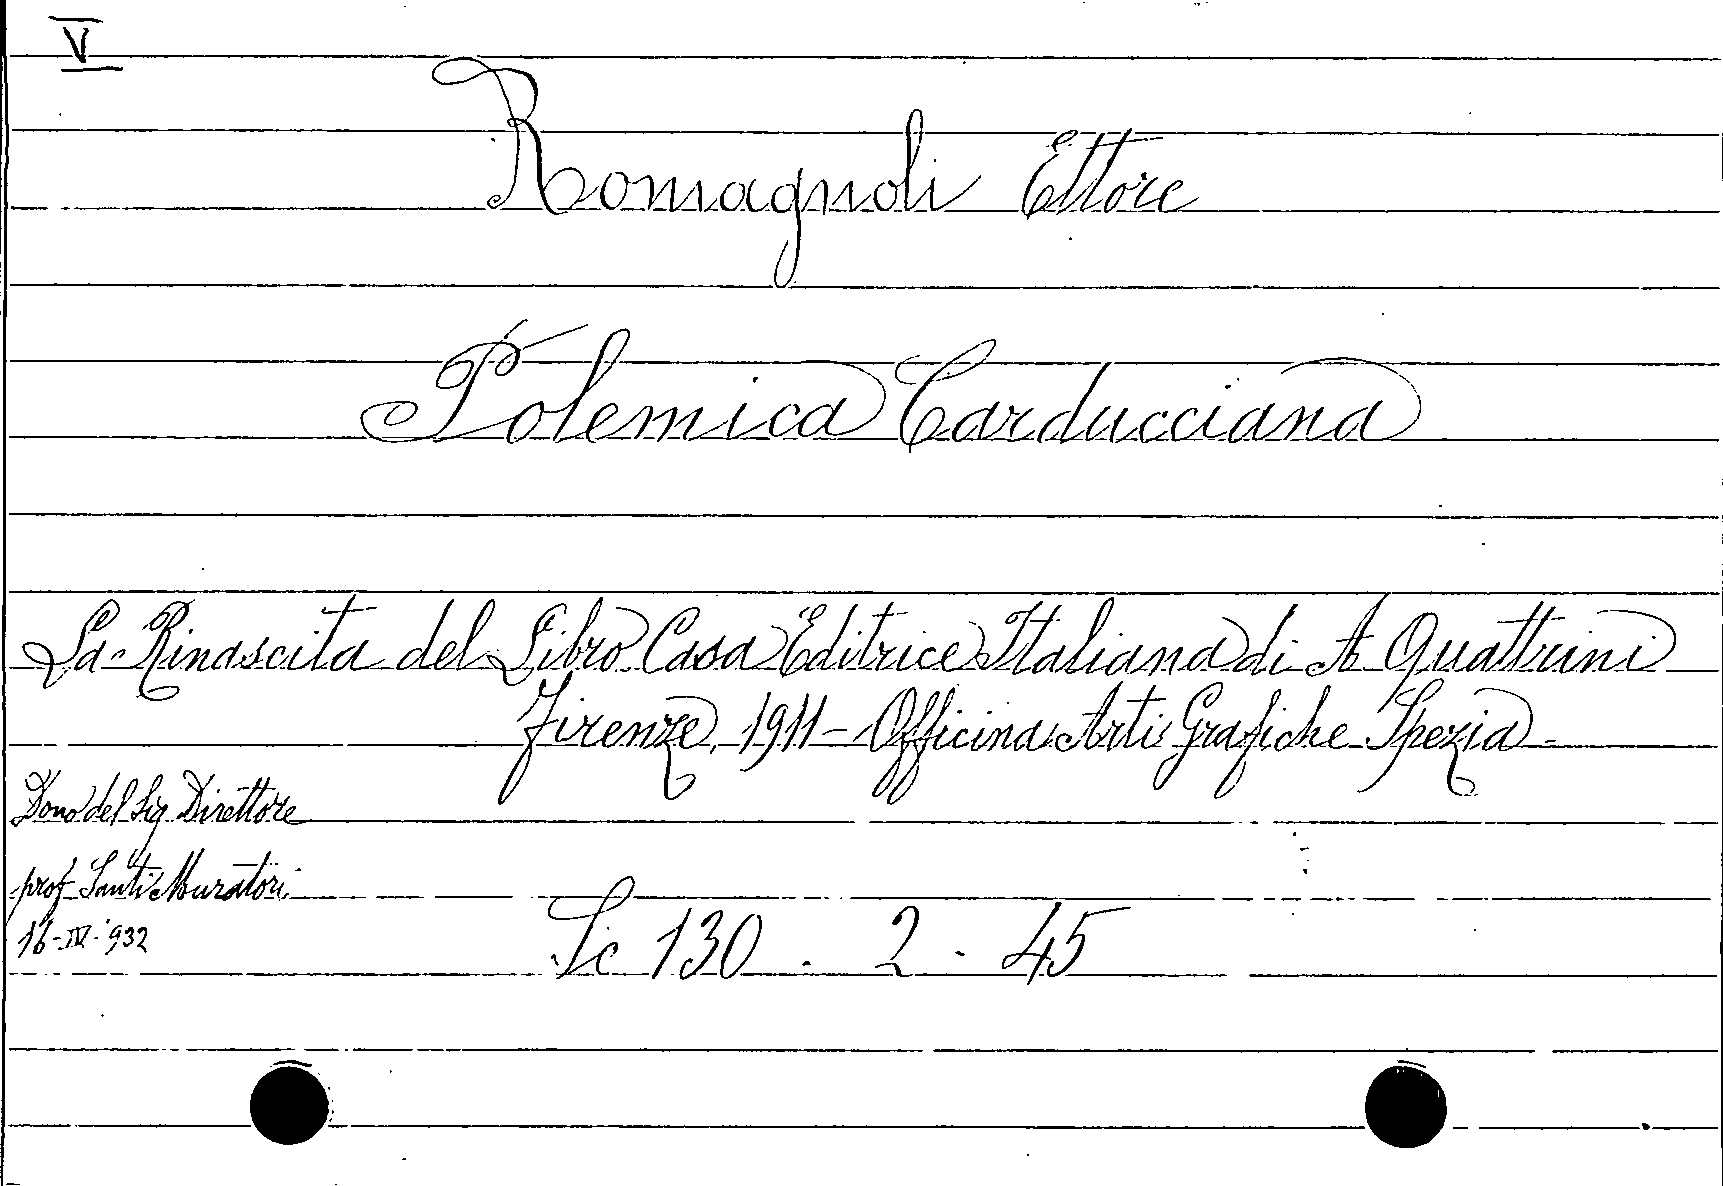 V
Romagnoli Ettore
Polemica Carducciana
La Rinascita del Libro Casa Editrice Italiana di A Quattrini
Firenze, 1911 - Officina Arti Grafiche Spezia -
Dono del Sig Direttore
prof Santi Muratori
16-IV-932
Sc 130 . 2 . 45